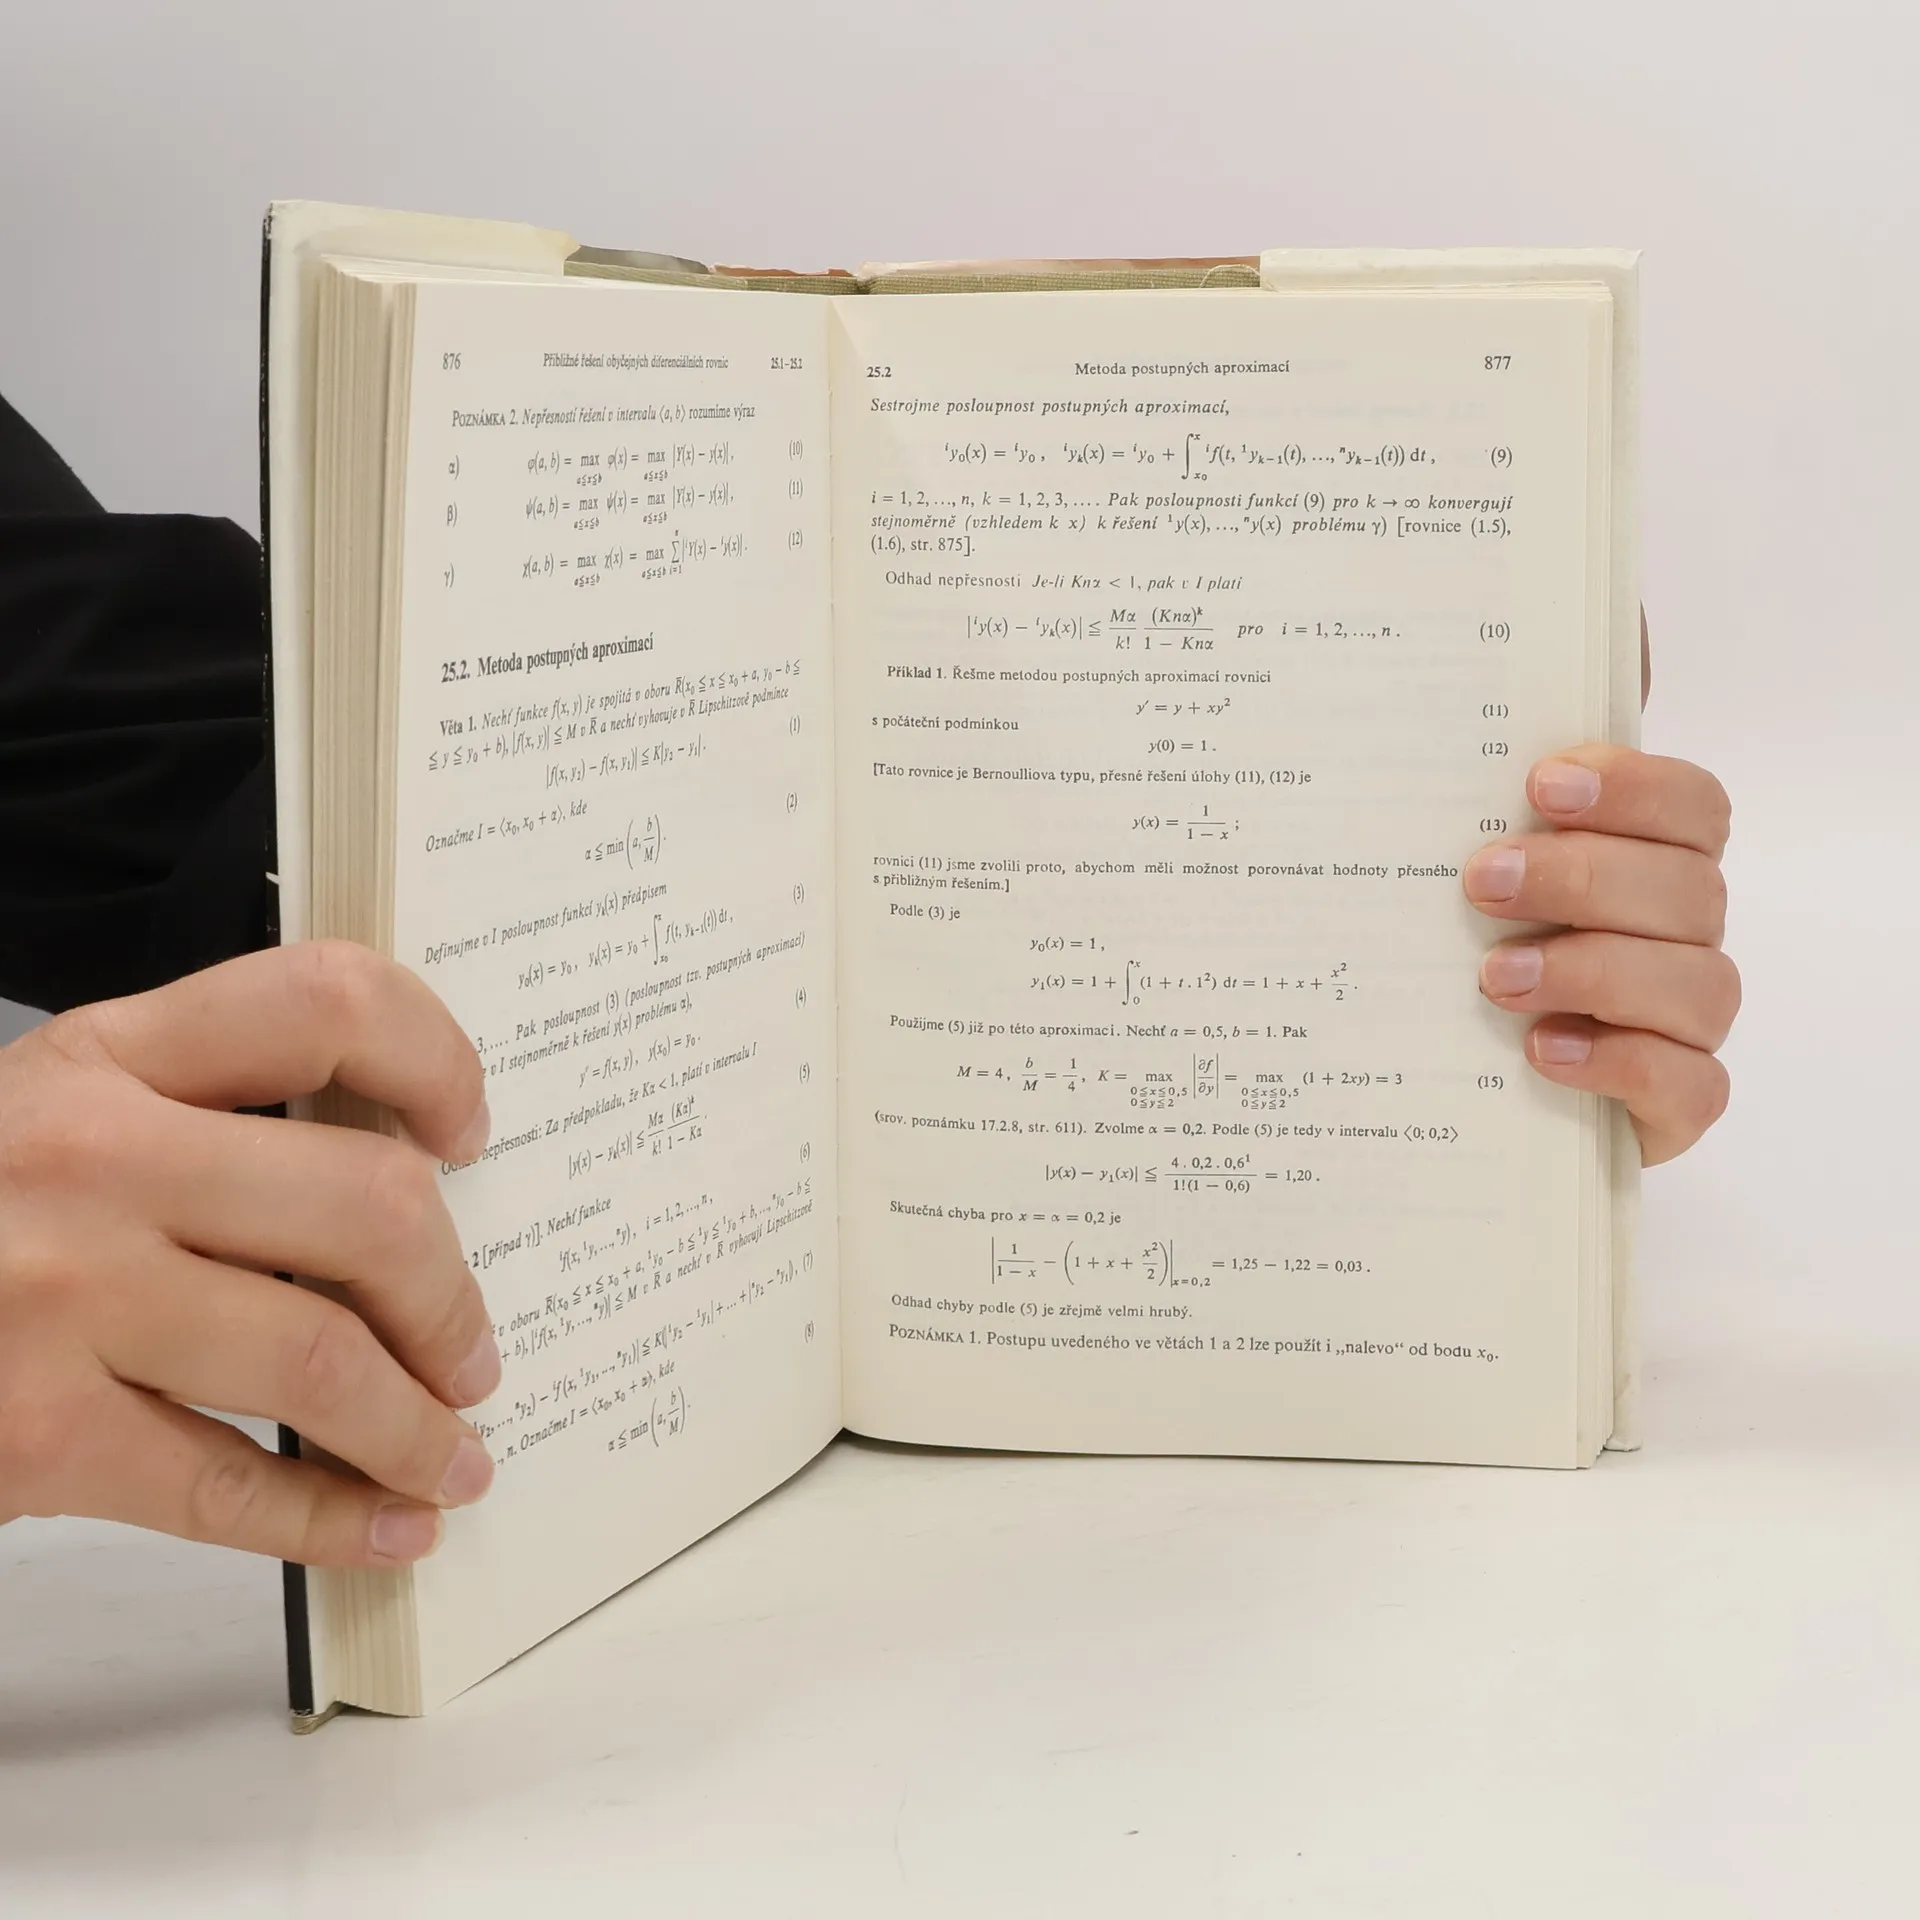 876 Přibližné řešení obyčejných diferenciálních rovnic 25.1–25.2
POZNÁMKA 2. Nepřesností řešení v intervalu ⟨a, b⟩ rozumíme výraz
α) φ(a, b) = max φ(x) = max |Y(x) − y(x)|, (10)
a≦x≦b a≦x≦b
β) ψ(a, b) = max ψ(x) = max |Y(x) − y(x)|, (11)
a≦x≦b a≦x≦b
γ) χ(a, b) = max χ(x) = max Σ |ⁱY(x) − ⁱy(x)|. (12)
a≦x≦b a≦x≦b i=1
25.2. Metoda postupných aproximací
Věta 1. Nechť funkce f(x, y) je spojitá v oboru R̄(x₀ ≦ x ≦ x₀ + a, y₀ − b ≦
≦ y ≦ y₀ + b), |f(x, y)| ≦ M v R̄ a nechť vyhovuje v R̄ Lipschitzově podmínce
|f(x, y₂) − f(x, y₁)| ≦ K|y₂ − y₁|. (1)
Označme I = ⟨x₀, x₀ + α⟩, kde
α ≦ min (a, b/M). (2)
Definujme v I posloupnost funkcí yₖ(x) předpisem
y₀(x) = y₀, yₖ(x) = y₀ + ∫ₓ₀ˣ f(t, yₖ₋₁(t)) dt, (3)
3, .... Pak posloupnost (3) (posloupnost tzv. postupných aproximací)
v I stejnoměrně k řešení y(x) problému α),
y′ = f(x, y), y(x₀) = y₀. (4)
nepřesnosti: Za předpokladu, že Kα < 1, platí v intervalu I
|y(x) − yₖ(x)| ≦ Mα/k! (Kα)ᵏ/(1 − Kα). (5)
2 [případ γ)]. Nechť funkce
ⁱf(x, ¹y, ..., ⁿy), i = 1, 2, ..., n, (6)
v oboru R̄(x₀ ≦ x ≦ x₀ + a, ¹y₀ − b ≦ ¹y ≦ ¹y₀ + b, ..., ⁿy₀ − b ≦
+ b), |ⁱf(x, ¹y, ..., ⁿy)| ≦ M v R̄ a nechť v R̄ vyhovují Lipschitzově
y₂, ..., ⁿy₂) − ⁱf(x, ¹y₁, ..., ⁿy₁)| ≦ K(|¹y₂ − ¹y₁| + ... + |ⁿy₂ − ⁿy₁|), (7)
n. Označme I = ⟨x₀, x₀ + α⟩, kde
α ≦ min (a, b/M). (8)
25.2 Metoda postupných aproximací 877
Sestrojme posloupnost postupných aproximací,
ⁱy₀(x) = ⁱy₀, ⁱyₖ(x) = ⁱy₀ + ∫ₓ₀ˣ ⁱf(t, ¹yₖ₋₁(t), ..., ⁿyₖ₋₁(t)) dt, (9)
i = 1, 2, ..., n, k = 1, 2, 3, .... Pak posloupnosti funkcí (9) pro k → ∞ konvergují
stejnoměrně (vzhledem k x) k řešení ¹y(x), ..., ⁿy(x) problému γ) [rovnice (1.5),
(1.6), str. 875].
Odhad nepřesnosti Je-li Knα < 1, pak v I platí
|ⁱy(x) − ⁱyₖ(x)| ≦ Mα/k! (Knα)ᵏ/(1 − Knα) pro i = 1, 2, ..., n. (10)
Příklad 1. Řešme metodou postupných aproximací rovnici
y′ = y + xy² (11)
s počáteční podmínkou
y(0) = 1. (12)
[Tato rovnice je Bernoulliova typu, přesné řešení úlohy (11), (12) je
y(x) = 1/(1 − x) ; (13)
rovnici (11) jsme zvolili proto, abychom měli možnost porovnávat hodnoty přesného
s přibližným řešením.]
Podle (3) je
y₀(x) = 1,
y₁(x) = 1 + ∫₀ˣ (1 + t . 1²) dt = 1 + x + x²/2 .
Použijme (5) již po této aproximaci. Nechť a = 0,5, b = 1. Pak
M = 4, b/M = 1/4, K = max |∂f/∂y| = max (1 + 2xy) = 3 (15)
0≦x≦0,5 0≦x≦0,5
0≦y≦2 0≦y≦2
(srov. poznámku 17.2.8, str. 611). Zvolme α = 0,2. Podle (5) je tedy v intervalu ⟨0; 0,2⟩
|y(x) − y₁(x)| ≦ 4 . 0,2 . 0,6¹/1!(1 − 0,6) = 1,20 .
Skutečná chyba pro x = α = 0,2 je
|1/(1 − x) − (1 + x + x²/2)|ₓ₌₀,₂ = 1,25 − 1,22 = 0,03 .
Odhad chyby podle (5) je zřejmě velmi hrubý.
POZNÁMKA 1. Postupu uvedeného ve větách 1 a 2 lze použít i „nalevo“ od bodu x₀.